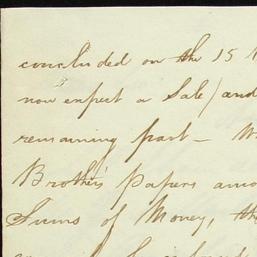 concluded on the 15
now expect a Sale/and
remaining part —
Brother's Papers amo
Sums of Money, the